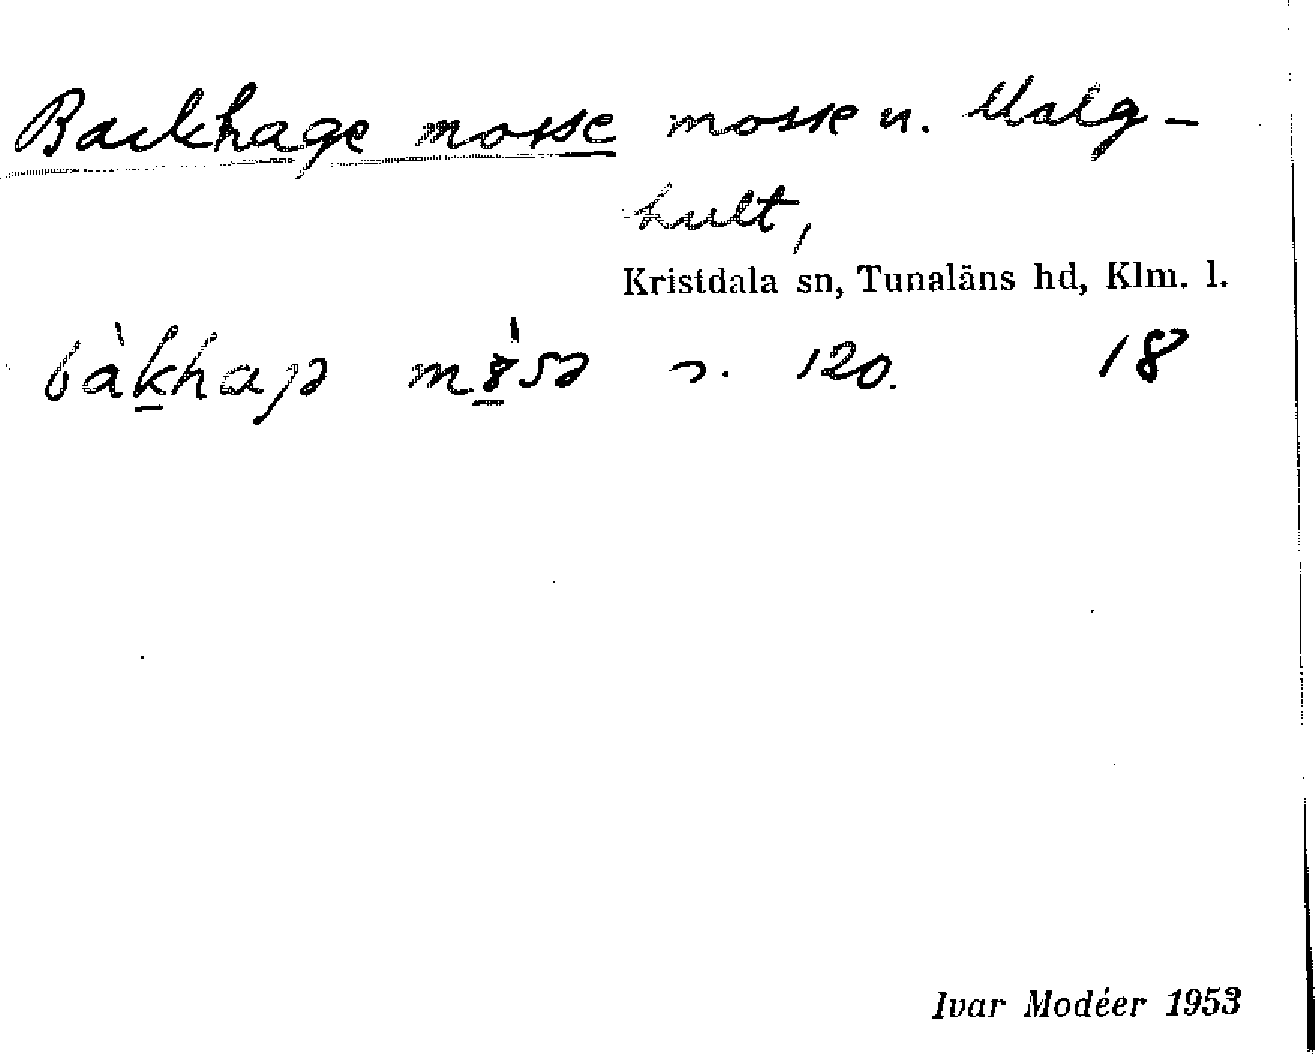 Backhage mosse mosse u. Malg-
hult,
Kristdala sn, Tunaläns hd, Klm. l.
s. 120. 18
Ivar Modéer 1953